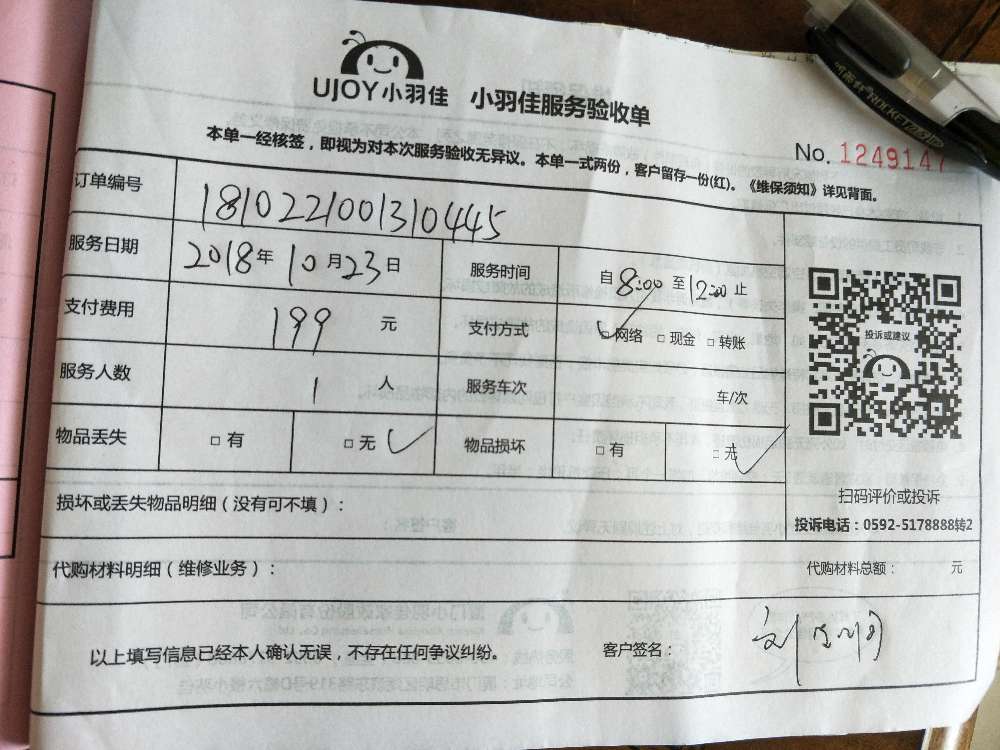 UJOY小羽佳 小羽佳服务验收单
本单一经核签，即视为对本次服务验收无异议。本单一式两份，客户留存一份(红)。《维保须知》详见背面。
No. 1249147
订单编号 1810221001310445
服务日期 2018年10月23日 服务时间 自8:00至12:00止
支付费用 199 元 支付方式 □网络 □现金 □转账
服务人数 1 人 服务车次 车/次
物品丢失 □有 □无 物品损坏 □有 □无
投诉或建议
扫码评价或投诉
投诉电话：0592-5178888转2
损坏或丢失物品明细（没有可不填）：
代购材料明细（维修业务）： 代购材料总额： 元
以上填写信息已经本人确认无误，不存在任何争议纠纷。 客户签名：